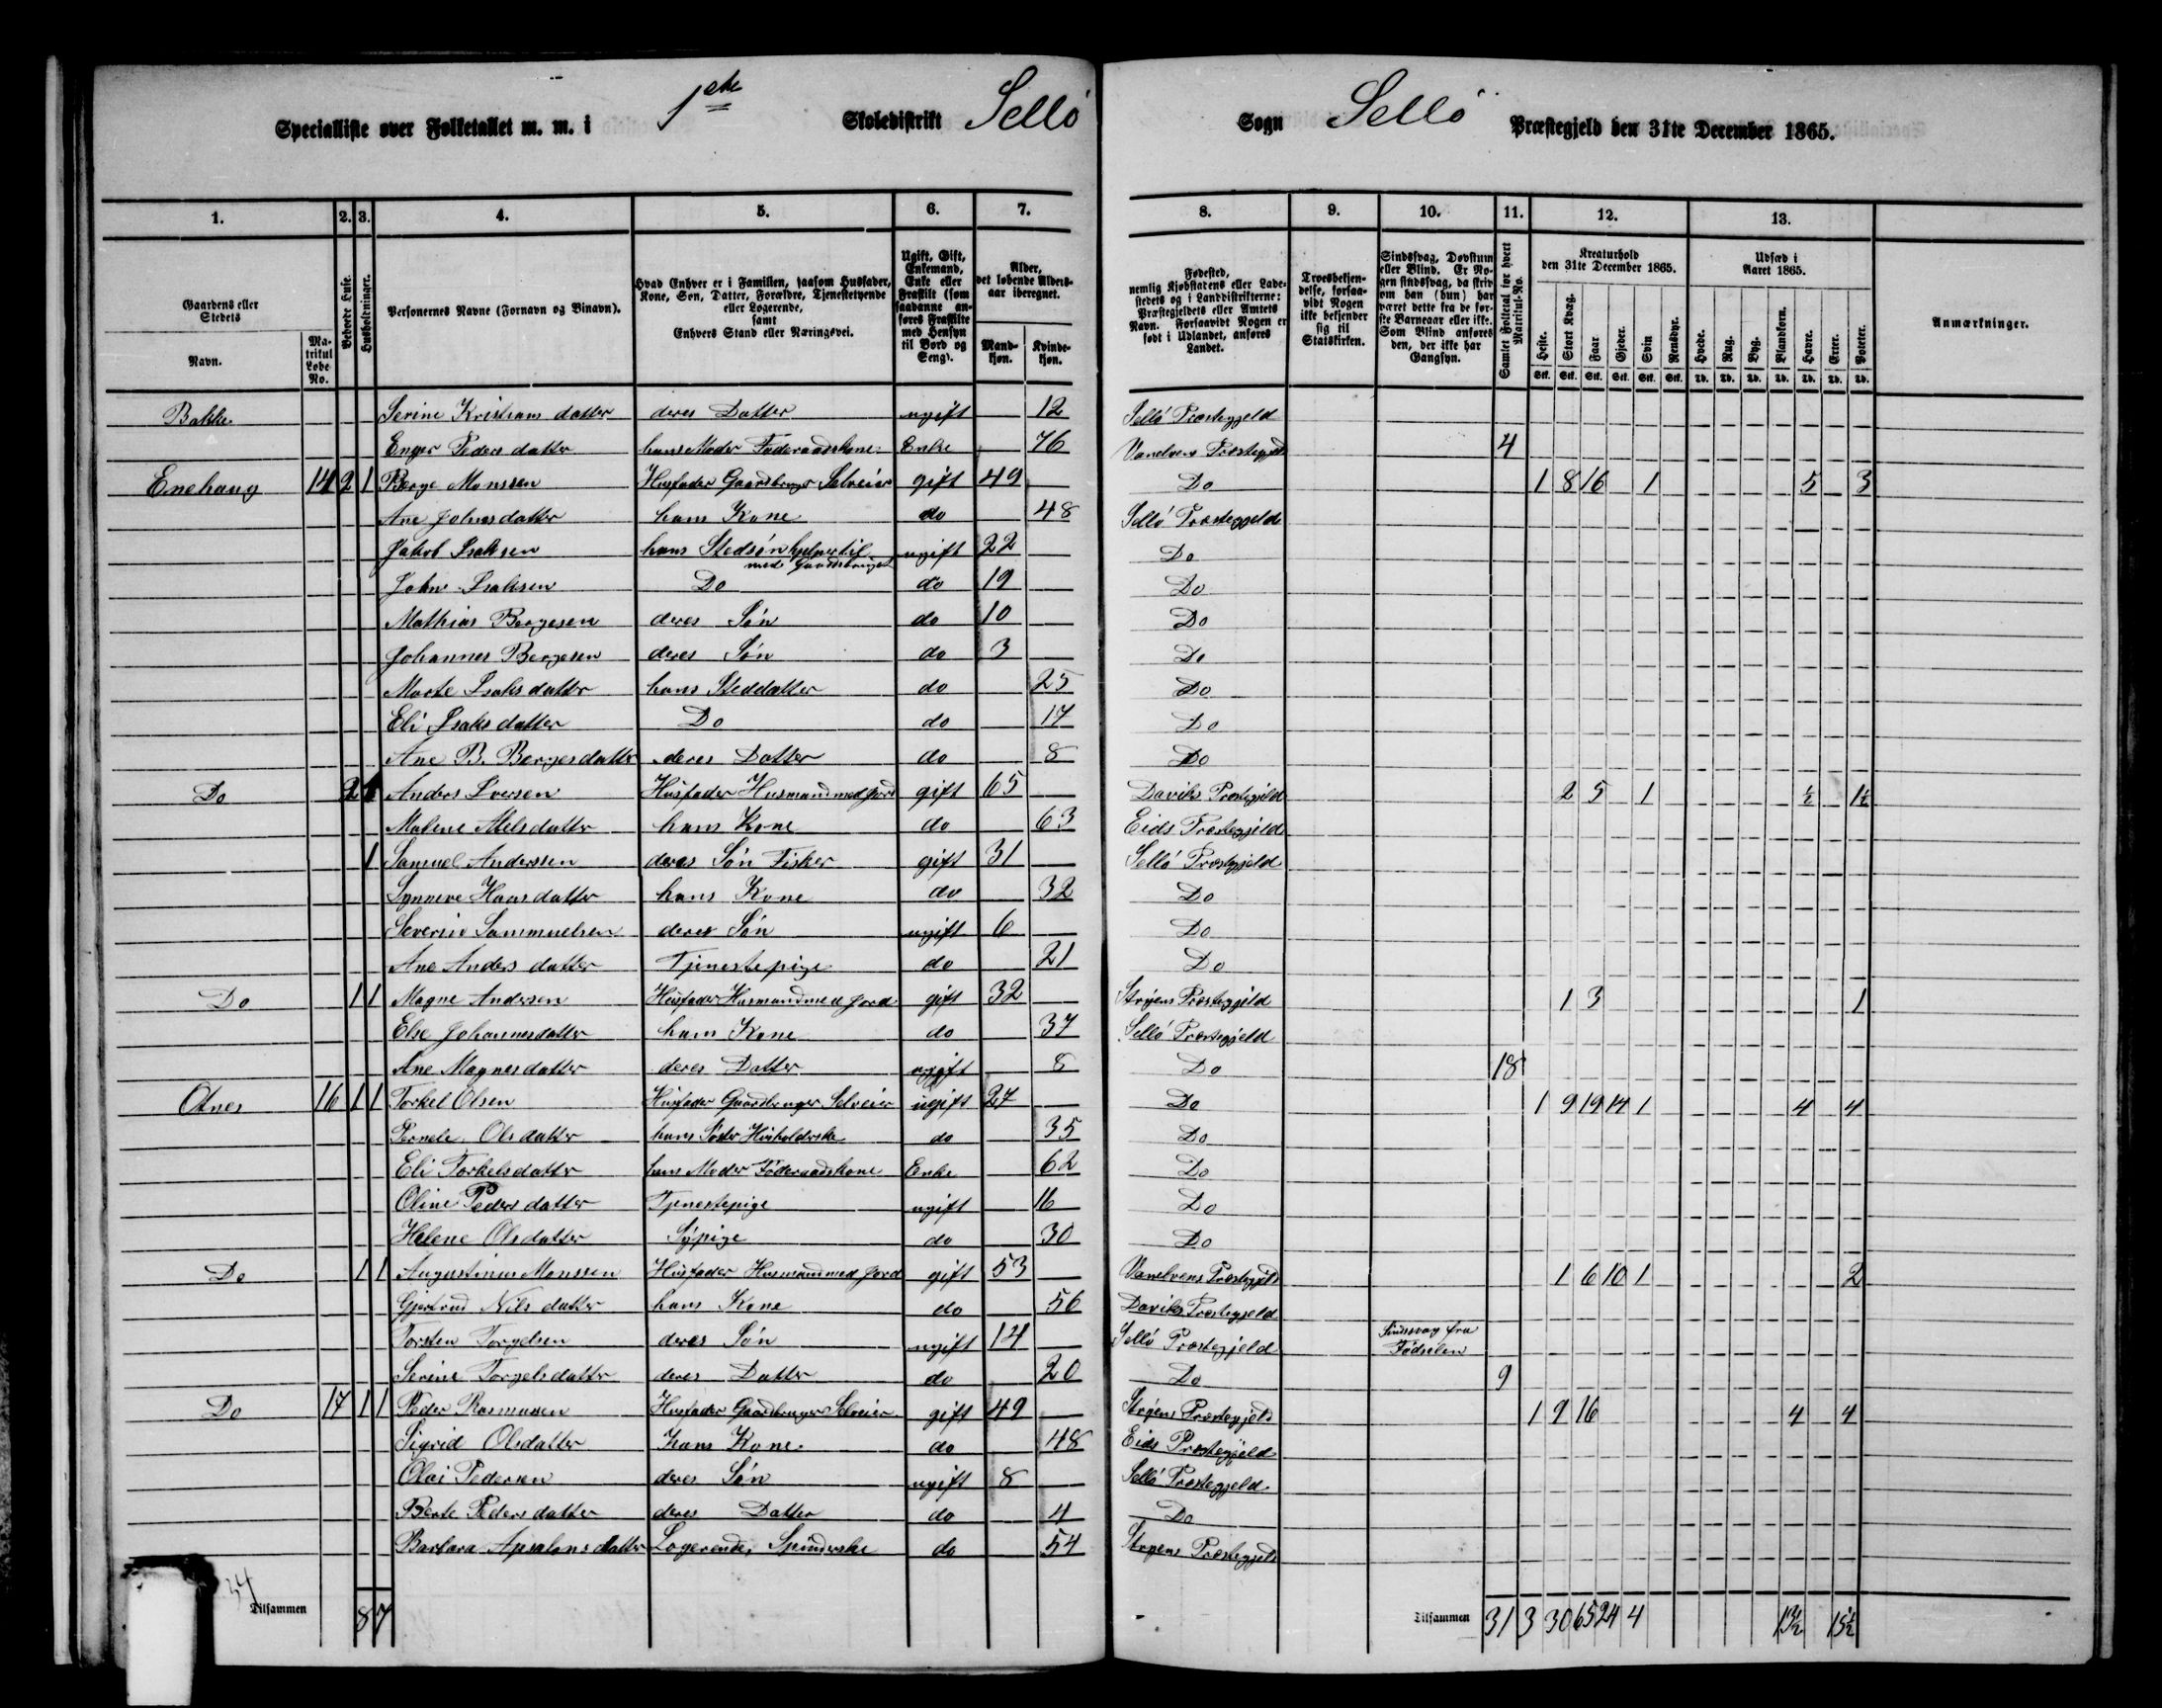 Specialliste over Folketallet m. m. i 1ste Skoledistrikt Sellö Sogn Sellö Præstegjeld den 31te December 1865.
1. 2. 3. 4. 5. 6. 7. 8. 9. 10. 11. 12. 13.
Gaardens eller Stedets
Navn.
Matrikul Løbe No.
Beboede Huse.
Husholdninger.
Personernes Navne (Fornavn og Binavn).
Hvad Enhver er i Familien, saasom Husfader, Kone, Søn, Datter, Forældre, Tjenestetyende eller Logerende, samt Enhvers Stand eller Næringsvei.
Ugift, Gift, Enkemand, Enke eller Fraskilt (som saadanne anføres Fraskilte med Hensyn til Bord og Seng).
Alder, det løbende Aldersaar iberegnet.
Mandkjøn.
Kvindekjøn.
Fødested, nemlig Kjøbstadens eller Ladestedets og i Landdistrikterne: Præstegjeldets eller Amtets Navn. Forsaavidt Nogen er født i Udlandet, anføres Landet.
Troesbekjendelse, forsaavidt Nogen ikke bekjender sig til Statskirken.
Sindssvag, Døvstum eller Blind. Er Nogen sindssvag, da skriv om han (hun) har været dette fra de første Barneaar eller ikke. Som Blind anføres den, der ikke har Gangsyn.
Samlet Folketal for hvert Matrikul-No.
Kreaturhold den 31te December 1865.
Heste. Stort Kvæg. Faar Gjeder. Svin Rensdyr.
Stk. Stk. Stk. Stk. Stk. Stk.
Udsæd i Aaret 1865.
Hvede. Rug. Byg. Blandkorn. Havre. Erter. Poteter.
Td. Td. Td. Td. Td. Td. Td.
Anmærkninger.
Bakke Serine Kristians datter deres Datter ugift 12 Sellö Præstegjeld
Enger Peders datter hans Moder Föderaadskone Enke 76 Vanelvens Præstegjeld 4
Enehaug 14 2 1 Berge Monssen Husfader Gaardbruger Selveier gift 49 Do 1 8 16 1 5 3
Ane Johnsdatter hans Kone do 48 Sellö Præstegjeld
Jakob Isaksen hans Stedsön hjelper til med Gaardsbruget ugift 22 Do
John Isaksen Do do 19 Do
Mathias Bergesen deres Sön do 10 Do
Johannes Bergesen deres Sön do 3 Do
Marte Isaksdatter hans Steddatter do 25 Do
Eli Isaksdatter Do do 17 Do
Ane B. Bergesdatter deres Datter do 8 Do
Do 2 1 Anders Iversen Husfader Husmand med Jord gift 65 Daviks Præstegjeld 2 5 1 ½ 1½
Malene Abelsdatter hans Kone do 63 Eids Præstegjeld
1 Samuel Anderssen deres Sön Fisker gift 31 Sellö Præstegjeld
Synneve Hansdatter hans Kone do 32 Do
Severin Sammuelsen deres Sön ugift 6 Do
Ane Anders datter Tjenestepige do 21 Do
Do 1 1 Magne Andersen Husfader Husmand med Jord gift 32 Stryens Præstegjeld 1 3 1
Else Johannesdatter hans Kone do 37 Sellö Præstegjeld
Ane Magnesdatter deres Datter ugift 8 Do 18
Otnes 16 1 1 Torkel Olsen Husfader Gaardbruger Selveier ugift 27 Do 1 9 19 14 1 4 4
Pernele Olsdatter hans Söster Husholderske do 35 Do
Eli Torkelsdatter hans Moder Föderaadskone Enke 62 Do
Oline Pedersdatter Tjenestepige ugift 16 Do
Helene Olsdatter Sypige do 30 Do
Do 1 1 Augustinus Monssen Husfader Husmand med Jord gift 53 Vanelvens Præstegjeld 1 6 10 1 2
Gjertrud Nils datter hans Kone do 56 Daviks Præstegjeld
Torsten Torgelsen deres Sön ugift 14 Sellö Præstegjeld Sindssvag fra Födselen
Serine Torgelsdatter deres Datter do 20 Do 9
Do 17 1 1 Peder Rasmussen Husfader Gaardbruger Selveier gift 49 Stryens Præstegjeld 1 9 16 4 4
Sigrid Olsdatter Hans Kone do 48 Eids Præstegjeld
Olai Pedersen deres Sön ugift 8 Sellö Præstegjeld
Berte Pedersdatter deres Datter do 4 Do
Barbara Apsalons datter Logerende, Spinderske do 54 Stryens Præstegjeld
34
Tilsammen 8 7 Tilsammen 31 3 30 65 24 4 13½ 15½